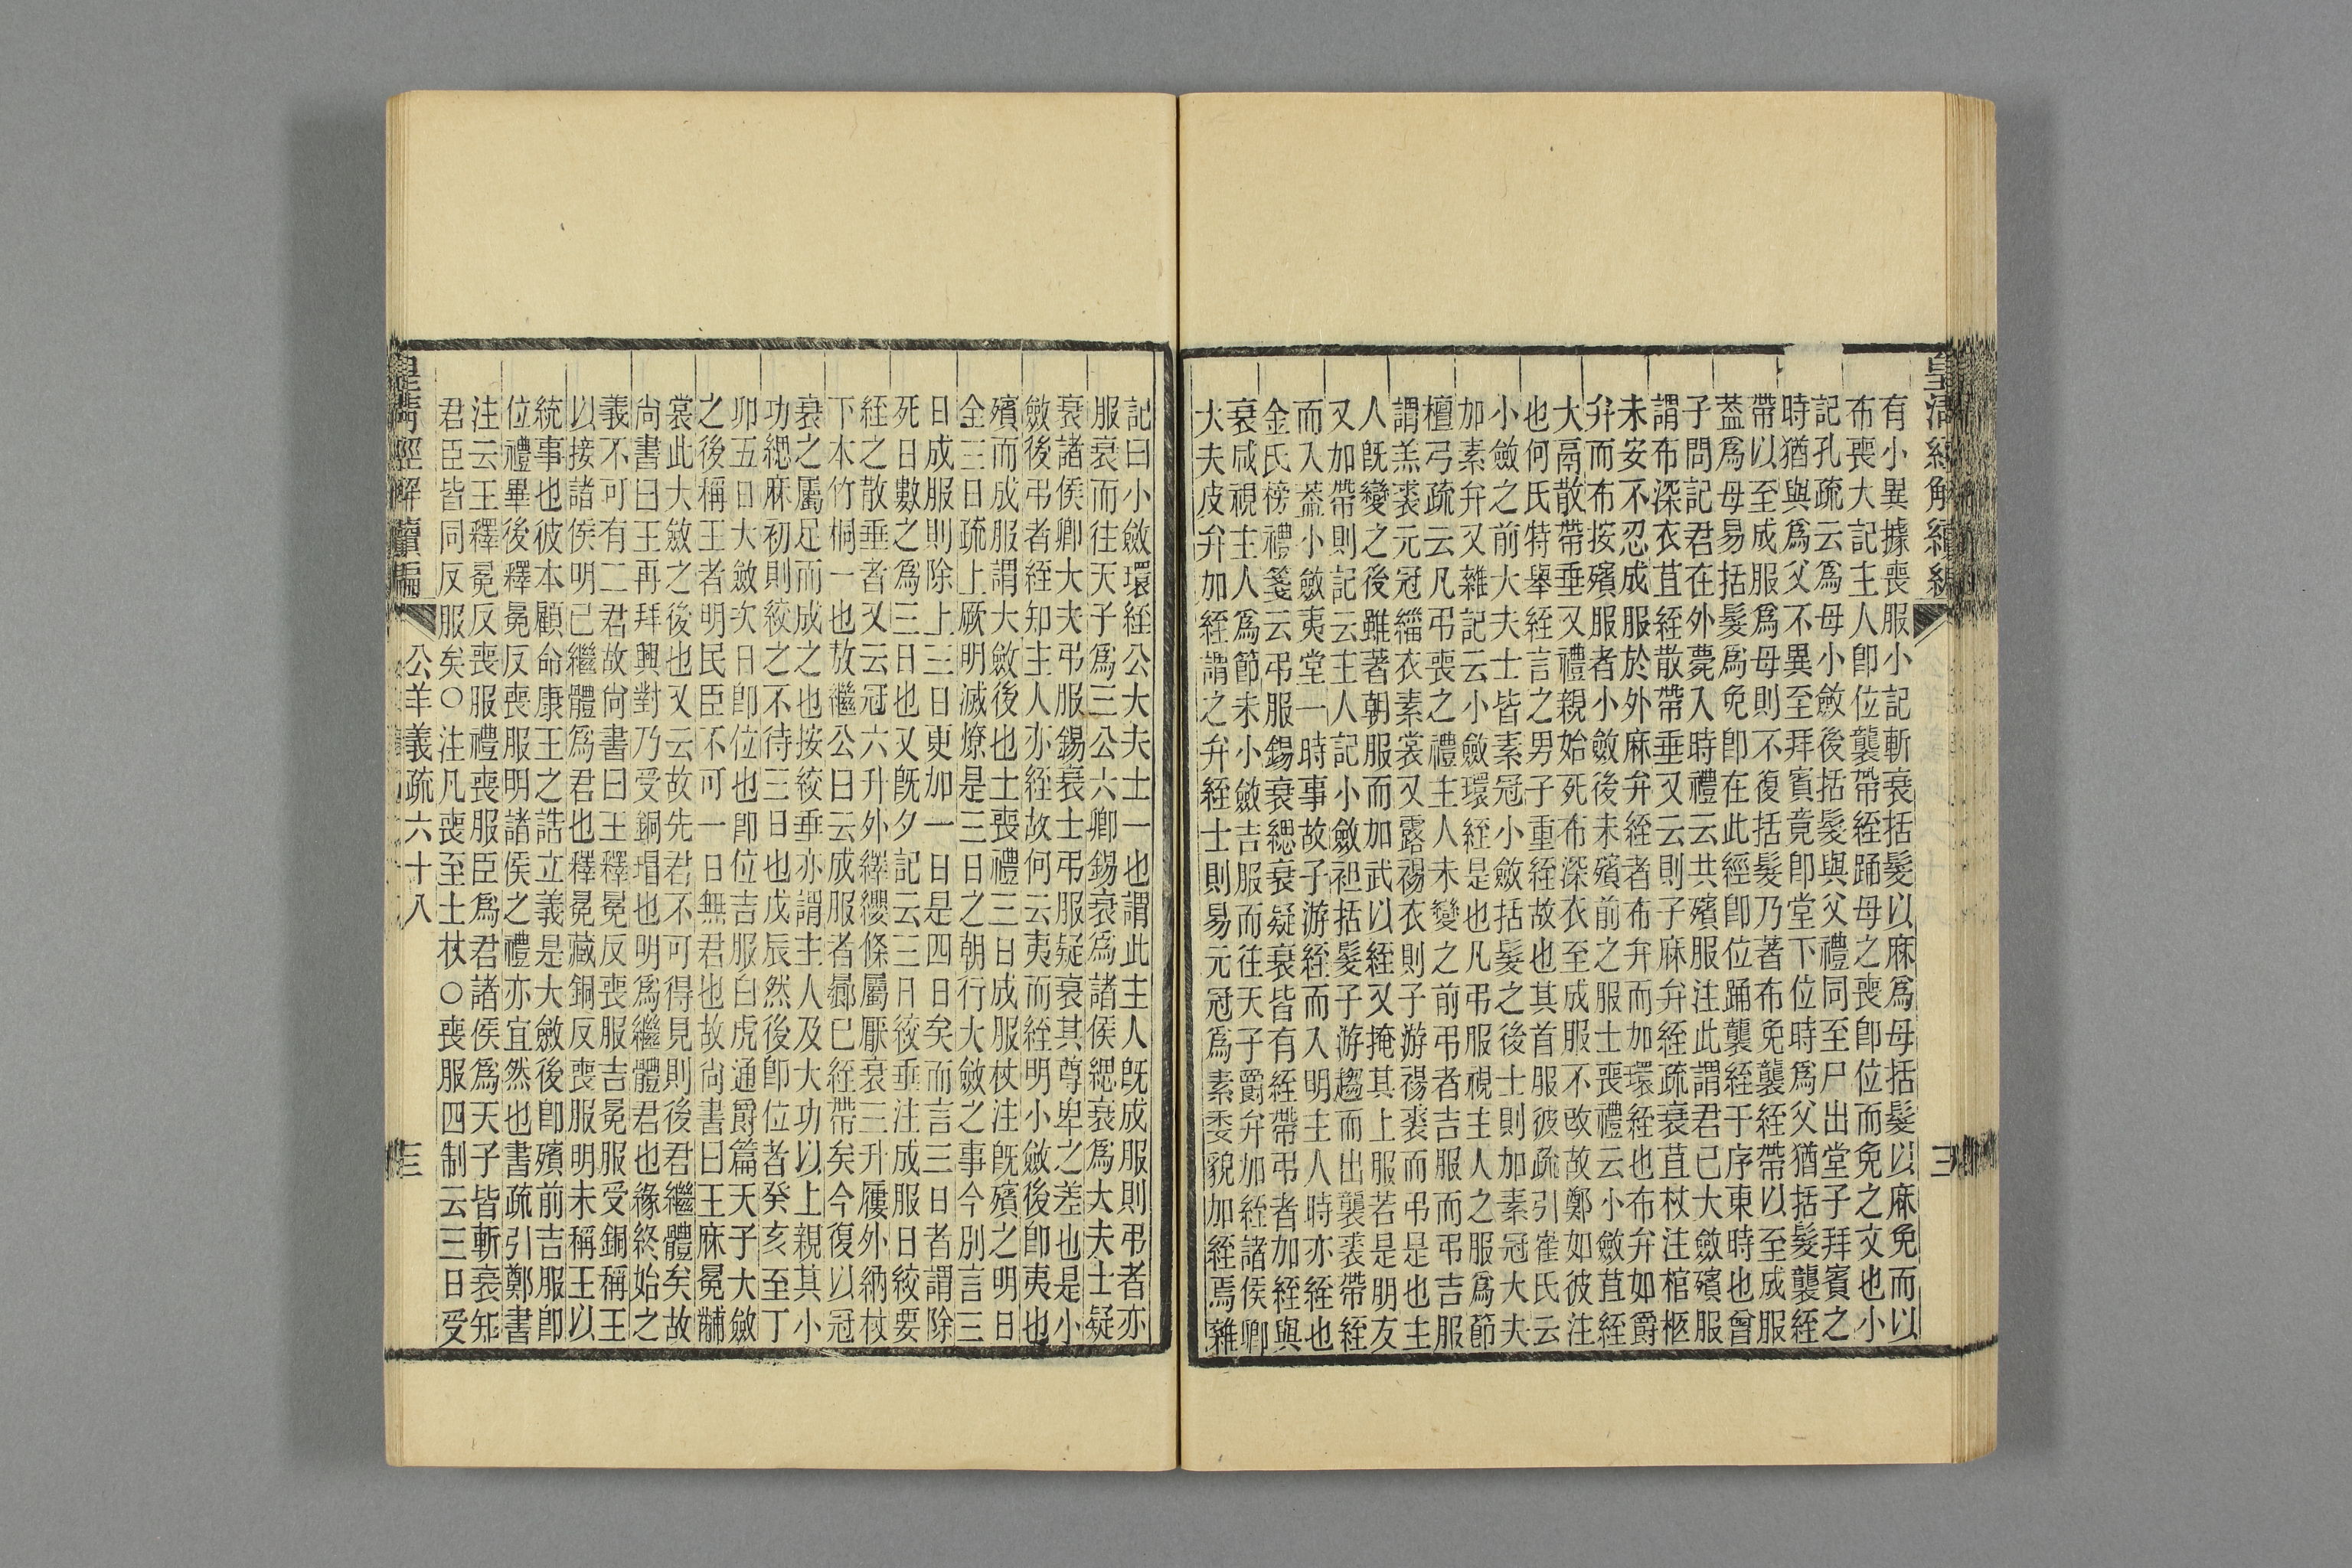 皇清經解續編
三
有小異據喪服小記斬衰括髮以麻爲母括髮以麻免而以
布喪大記主人卽位襲帶絰踊母之喪卽位而免之文也小
記孔疏云爲母小斂後括髮與父禮同至尸出堂子拜賓之
時猶與爲父不異至拜賓竟卽堂下位時爲父猶括髮襲絰
帶以至成服爲母則不復括髮乃著布免襲絰帶以至成服
葢爲母易括髮爲免卽在此經卽位踊襲絰于序東時也曾
子問記君在外薨入時禮云共殯服注此謂君已大斂殯服
謂布深衣苴絰散帶垂又云則子麻弁絰疏衰苴杖注棺柩
未安不忍成服於外麻弁絰者布弁而加環絰也布弁如爵
弁而布按殯服者小斂後未殯前之服士喪禮云小斂苴絰
大鬲散帶垂又禮親始死布深衣至成服不改故鄭如彼注
也何氏特舉絰言之男子重絰故也其首服彼疏引崔氏云
小斂之前大夫士皆素冠小斂括髮之後士則加素冠大夫
加素弁又雜記云小斂環絰是也凡弔服視主人之服爲節
檀弓疏云凡弔喪之禮主人未變之前弔者吉服而弔吉服
謂羔裘元冠緇衣素裳又露裼衣則子游裼裘而弔是也主
人旣變之後雖著朝服而加武以絰又掩其上服若是朋友
又加帶則記云主人記小斂袒括髮子游趨而出襲裘帶絰
而入葢小斂夷堂一時事故子游絰而入明主人時亦絰也
金氏榜禮箋云弔服錫衰緦衰疑衰皆有絰帶弔者加絰與
衰咸視主人爲節未小斂吉服而往天子爵弁加絰諸侯卿
大夫皮弁加絰謂之弁絰士則易元冠爲素委貌加絰焉雜
記曰小斂環絰公大夫士一也謂此主人旣成服則弔者亦
服衰而往天子爲三公六卿錫衰爲諸侯緦衰爲大夫士疑
衰諸侯卿大夫弔服錫衰士弔服疑衰其尊卑之差也是小
斂後弔者絰知主人亦絰故何云夷而絰明小斂後卽夷也
殯而成服謂大斂後也士喪禮三日成服杖注旣殯之明日
全三日疏上厥明滅燎是三日之朝行大斂之事今別言三
日成服則除上三日更加一日是四日矣而言三日者謂除
死日數之爲三日也又旣夕記云三日絞垂注成服日絞要
絰之散垂者又云冠六升外縪纓條屬厭衰三升屨外納杖
下本竹桐一也敖繼公曰云成服者曏已絰帶矣今復以冠
衰之屬足而成之也按絞垂亦謂主人及大功以上親其小
功緦麻初則絞之不待三日也戊辰然後卽位者癸亥至丁
卯五日大斂次日卽位也卽位吉服白虎通爵篇天子大斂
之後稱王者明民臣不可一日無君也故尙書曰王麻冕黼
裳此大斂之後也又云故先君不可得見則後君繼體矣故
尙書曰王再拜興對乃受銅瑁也明爲繼體君也緣終始之
義不可有二君故尙書曰王釋冕反喪服吉冕服受銅稱王
以接諸侯明已繼體爲君也釋冕藏銅反喪服明未稱王以
統事也彼本顧命康王之誥立義是大斂後卽殯前吉服卽
位禮畢後釋冕反喪服明諸侯之禮亦宜然也書疏引鄭書
注云王釋冕反喪服禮喪服臣爲君諸侯爲天子皆斬衰知
君臣皆同反服矣○注凡喪至士杖○喪服四制云三日受
皇淸經解續編
公羊義疏六十八
三